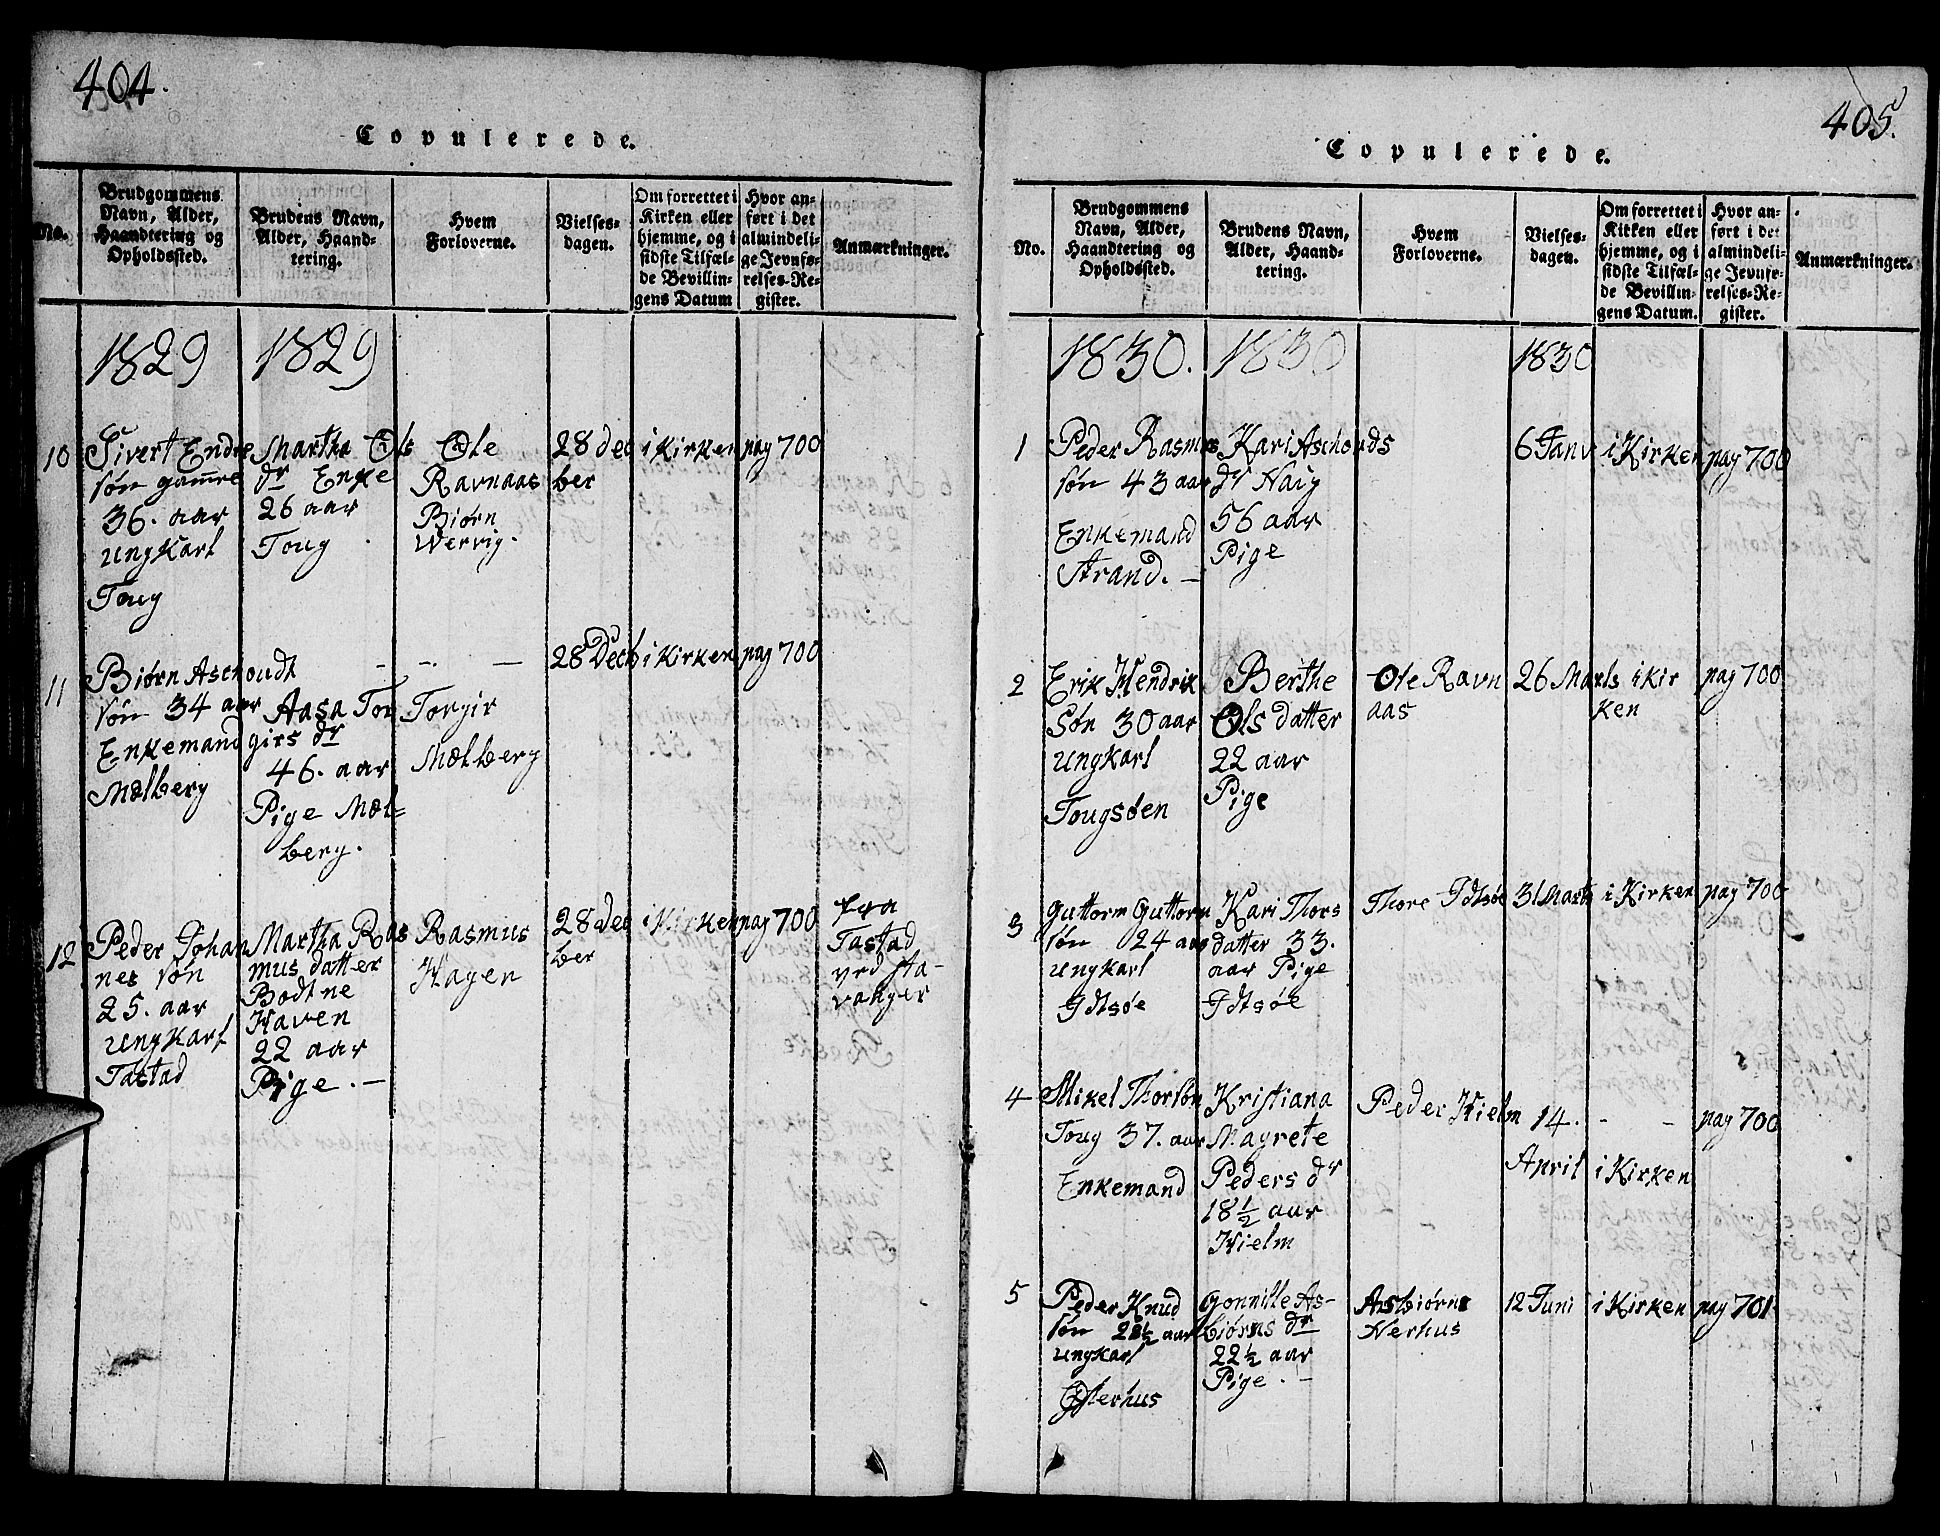 404.
Copulerede.
No.
Brudgommens
Navn, Alder,
Haandtering og
Opholdssted.
Brudens Navn,
Alder, Haand-
tering.
Hvem
Forloverne.
Vielses-
dagen.
Om forrettet i
Kirken eller
hjemme, og i
sidste Tilfæl-
de Bevillin-
gens Datum
Hvor an-
ført i det
almindeli-
ge Jevnfø-
relses-Re-
gister.
Anmærkninger.
1829
1829
10
Sivert Endre
søn gamre
36. aar
ungKarl
Toug
Martha Ols
dr Enke
26 aar
Toug
Ole
Ravnaas
Biørn
Wervig.
28 Dec
ber
i Kirken
pag 700
11
Biørn Aschoudt
søn 34 aar
Enkemand
Mælberg
Aasa Tor
girs dr
46. aar
Pige Mæl-
berg.
Torgir
Mælberg
28 Decb
i Kirken
pag 700
12
Peder Johan
nes søn
25. aar
ungKarl
Tastad
Martha Ras
mus datter
Bodtne
Haven
22 aar
Pige. —
Rasmus
Hagen
28 Dec
ber
i Kirken
pag 700
fra
Tastad
ved sta-
vanger
405.
Copulerede.
No.
Brudgommens
Navn, Alder,
Haandtering og
Opholdssted.
Brudens Navn,
Alder, Haand-
tering.
Hvem
Forloverne.
Vielses-
dagen.
Om forrettet i
Kirken eller
hjemme, og i
sidste Tilfæl-
de Bevillin-
gens Datum.
Hvor an-
ført i det
almindeli-
ge Jevnfø-
relses-Re-
gister.
Anmærkninger.
1830.
1830
1830
1
Peder Rasmus
søn 43 aar
Enkemand
Strand. —
Kari Aschouds
dr Naig
56 aar
Pige
6 Janv
i Kirken
pag 700
2
Erik Hendrik
Søn 30 aar
ungKarl
Tougsøen
Berthe
Ols datter
22 aar
Pige
Ole Ravn
aas
26 Marts
i Kir
ken
pag 700
3
Guttorm Guttorm
søn 24 aar
ungKarl
Idtsøe
Kari Thors
datter 33.
aar Pige
Idtsøe
Thore Idtsøe
31 Marts
i Kirken
pag 700
4
Mikel Thorsøn
Toug 37. aar
Enkemand
Kristiana
Magrete
Peders dr
18 ½ aar
Hielm
Peder Hielm
14.
April
i Kirken
pag 700
5
Peder Knud
søn 28½ aar
ungKarl
Østerhus
Gonnille As-
biørns dr
22½ aar
Pige. —
Asbiørn
Nerhus
12 Juni
i Kirken
pag 701